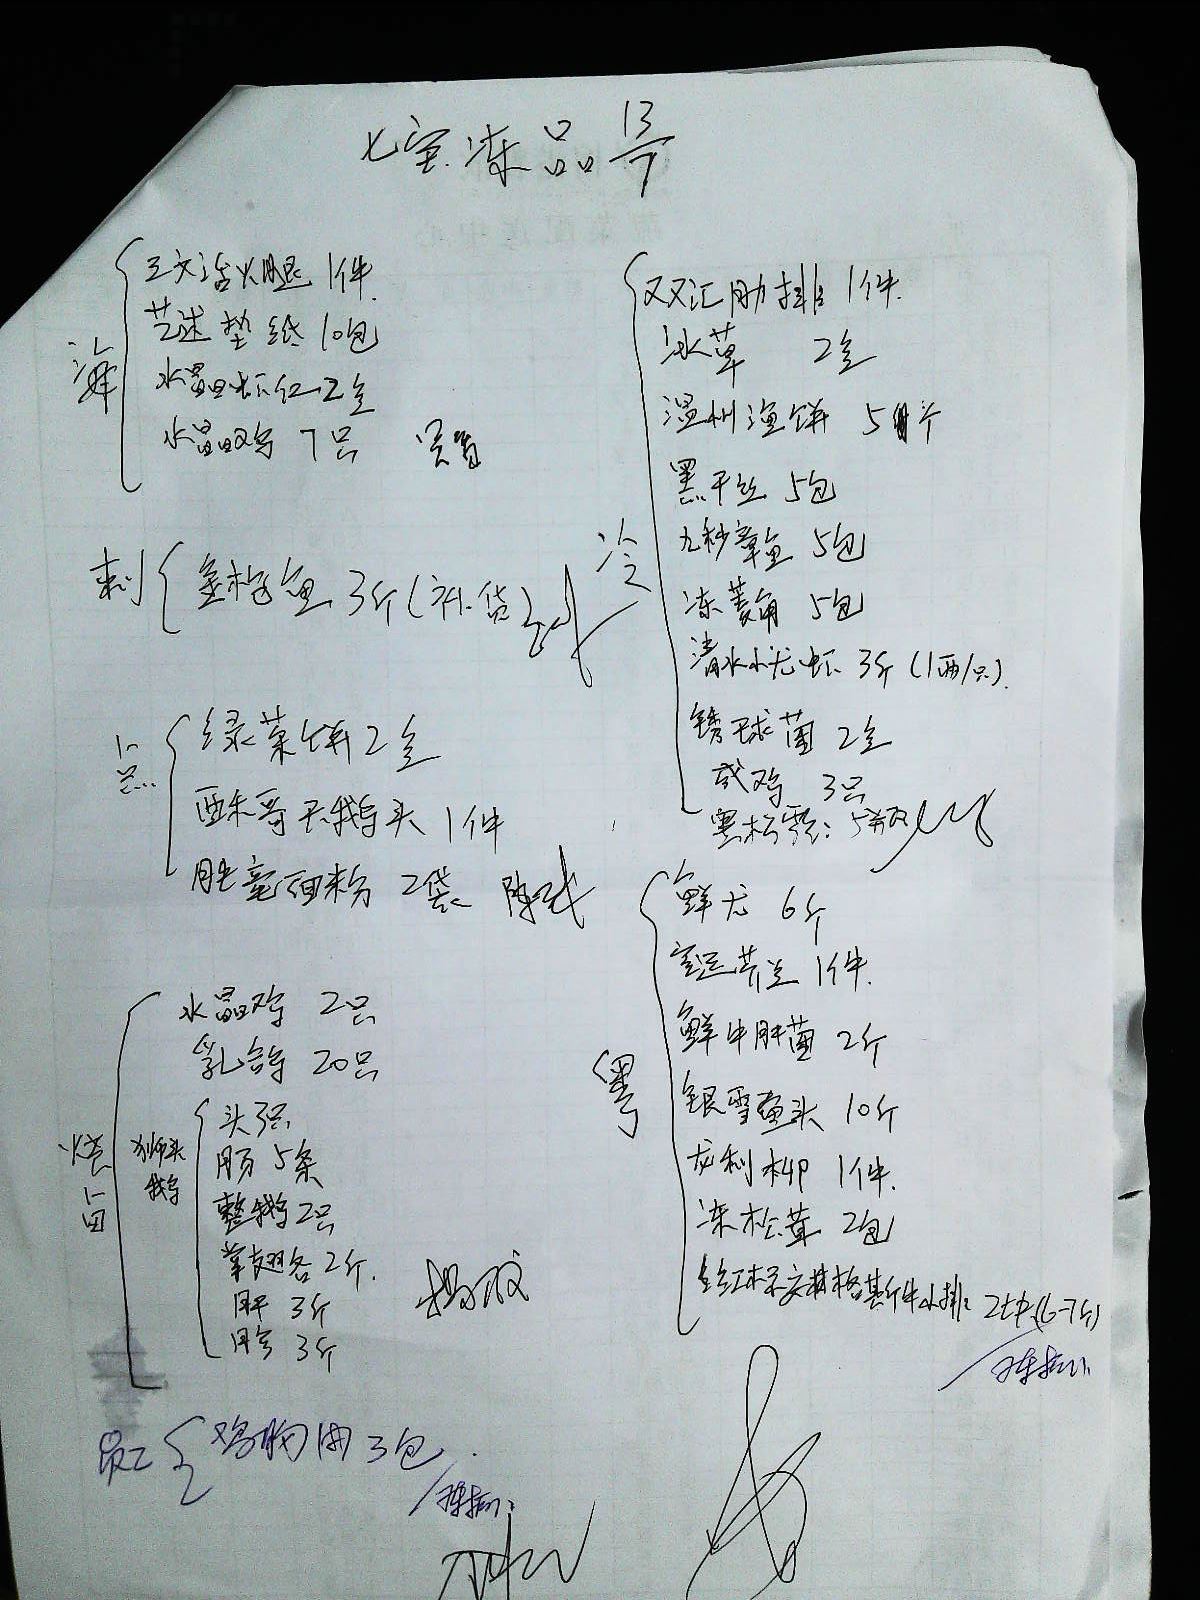 七宝冻品 13号
海
三文治火腿 1件
艺述垫纸 10包
水晶虾仁 2盒
水晶鸡 7只
刺
金枪鱼 3斤(补货)
点
绿茶饼 2盒
酉末哥天鹅头 1件
肚竟面粉 2袋
烧卤
水晶鸡 2只
乳鸽 20只
狮头鹅
头 3只
肠 5条
整鹅 2只
掌翅各 2斤
肝 3斤
胗 3斤
杨波
员工
鸡胸肉 3包
冷
双汇肋排 1件
冰草 2盒
温州渔饼 5个
黑千丝 5包
九秒章鱼 5包
冻菱角 5包
清水小龙虾 3斤(1两/只)
锈球菌 2盒
咸鸡 3只
黑松露: 5两
粤
鲜尤 6斤
芥兰 1件
鲜牛肝菌 2斤
银雪鱼头 10斤
龙利柳 1件
冻松茸 2包
红标安格斯牛小排: 2块(6-7斤)